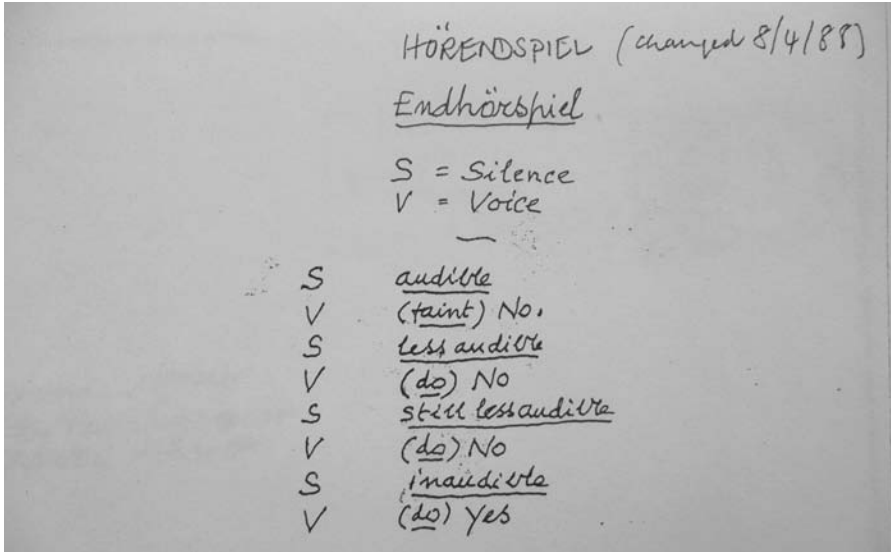 HÖRENDSPIEL (changed 8/4/88)
Endhörspiel
S = Silence
V = Voice
S audible
V (faint) No.
S less audible
V (do) No
S still less audible
V (do) No
S inaudible
V (do) Yes